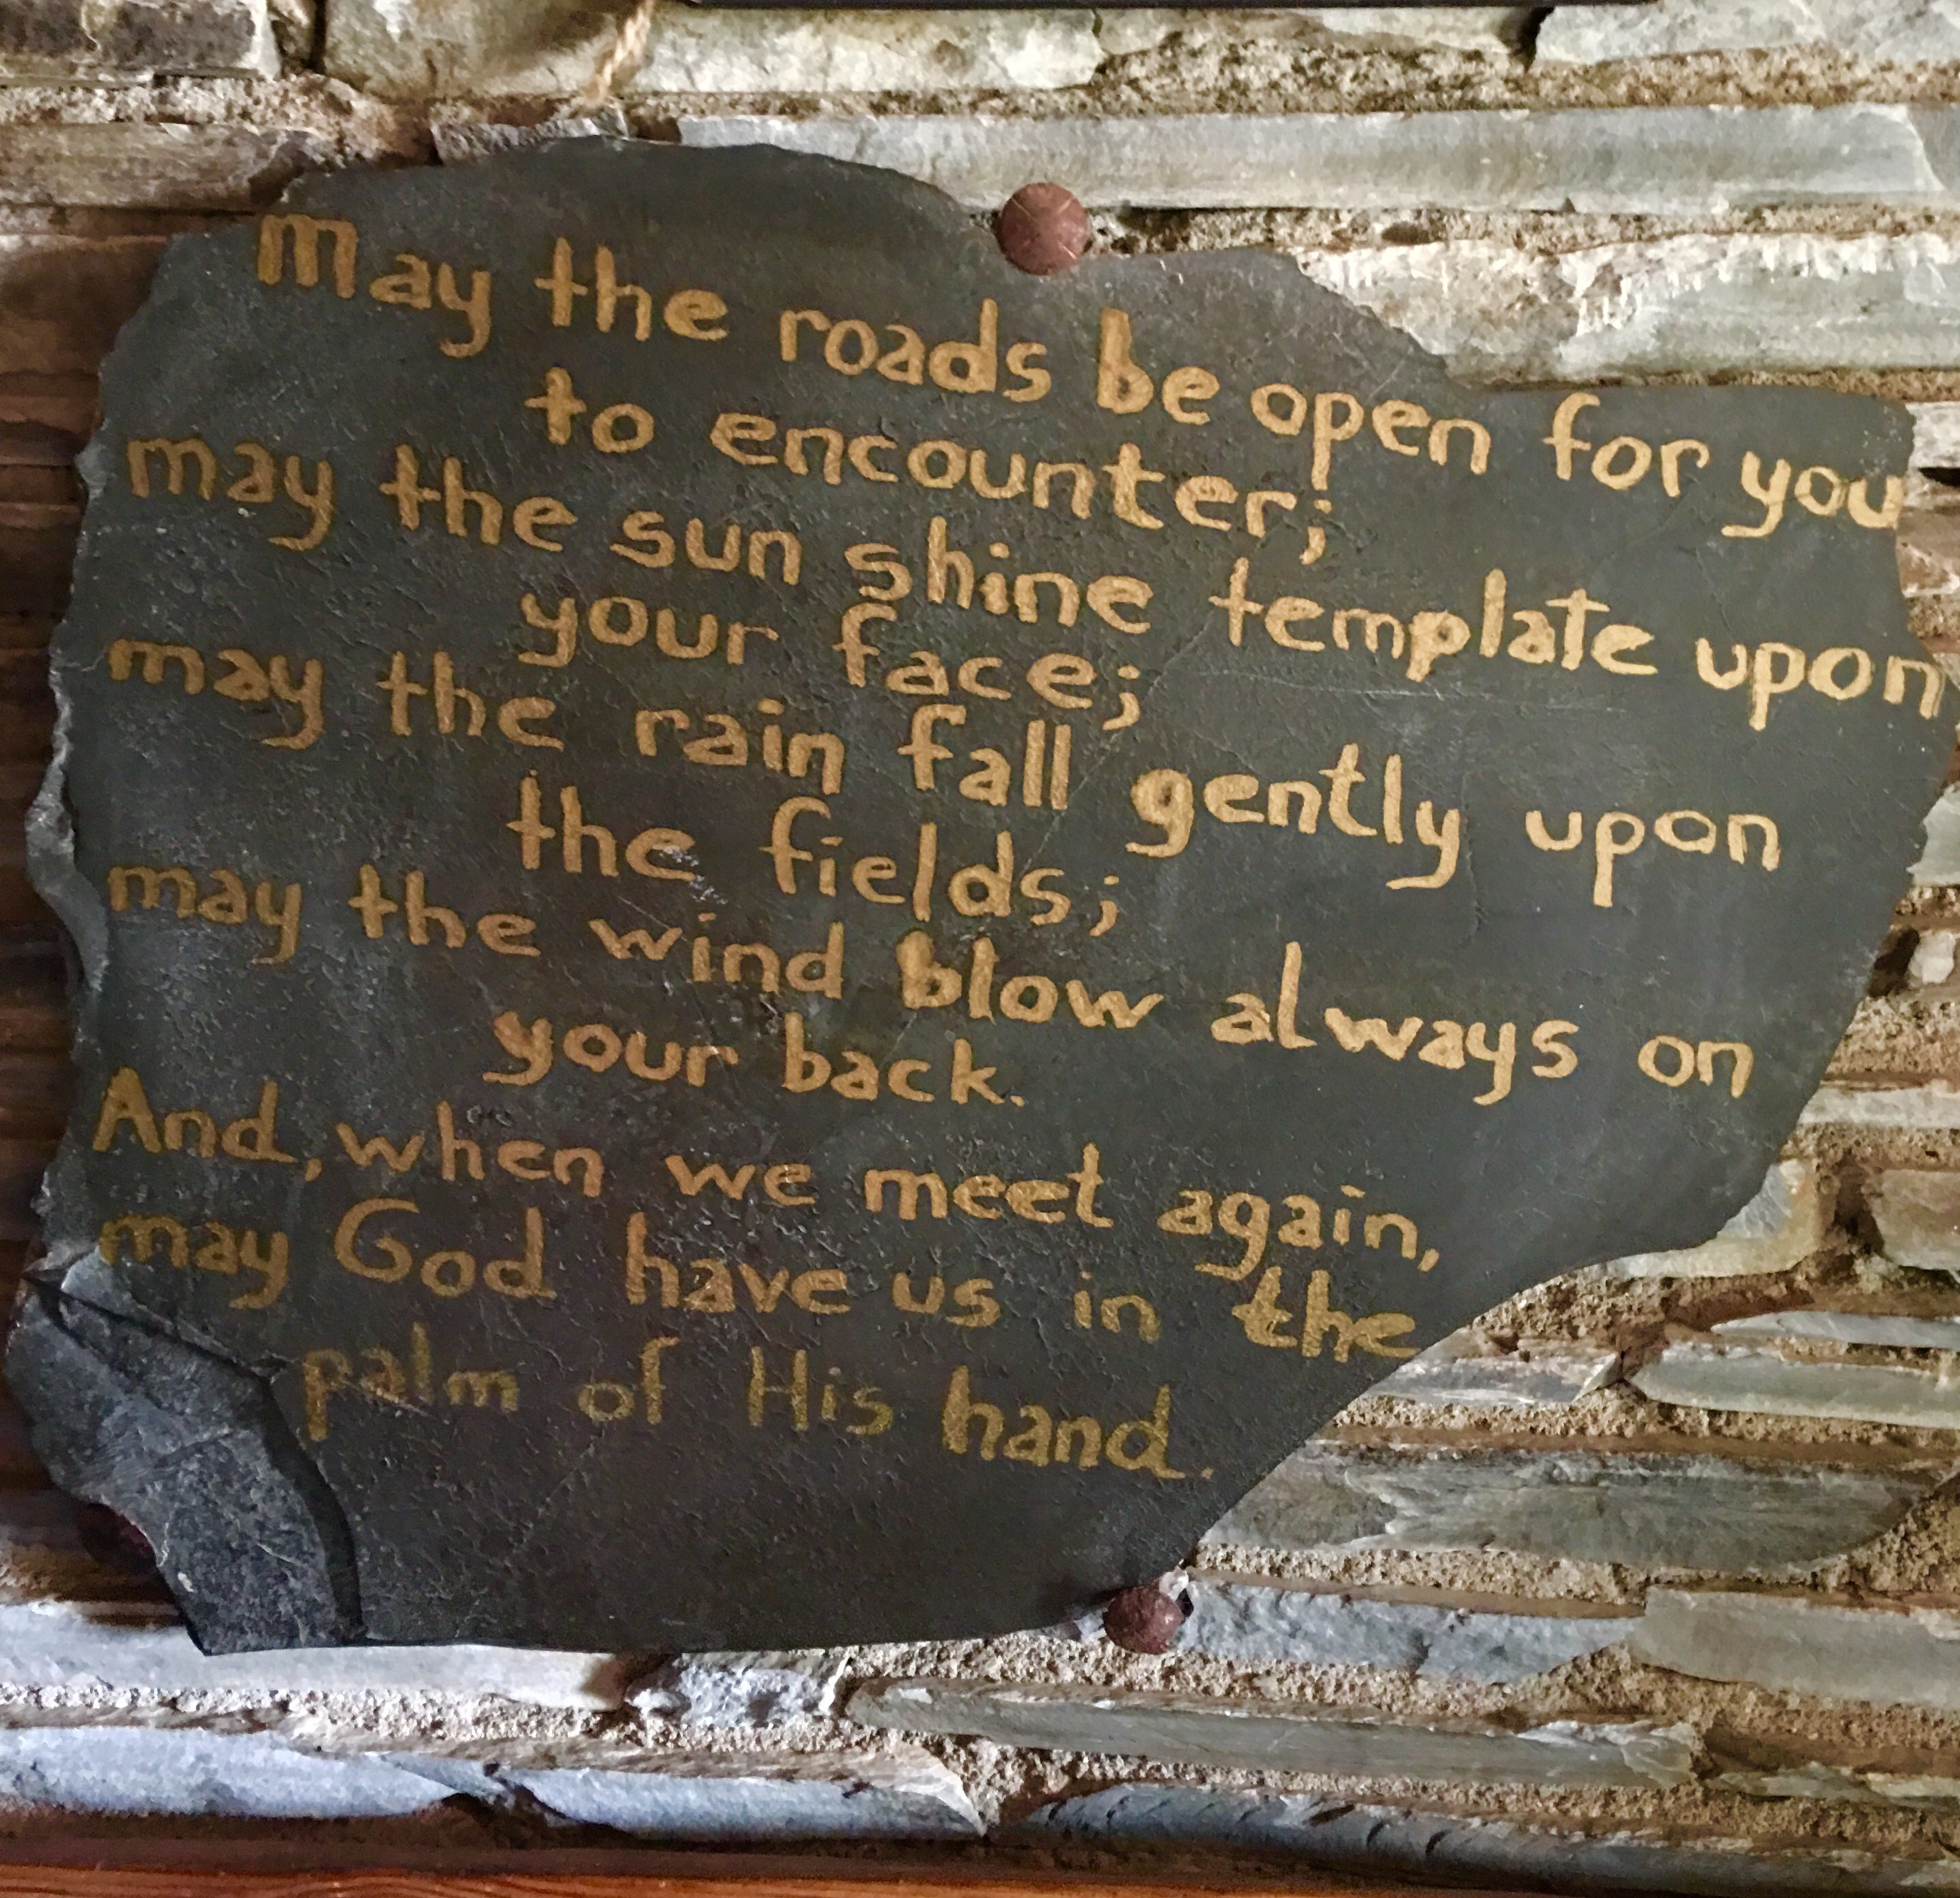 May the roads be open for you
to encounter;
may the sun shine template upon
your face;
may the rain fall gently upon
the fields;
may the wind blow always on
your back.
And, when we meet again,
may God have us in the
palm of His hand.